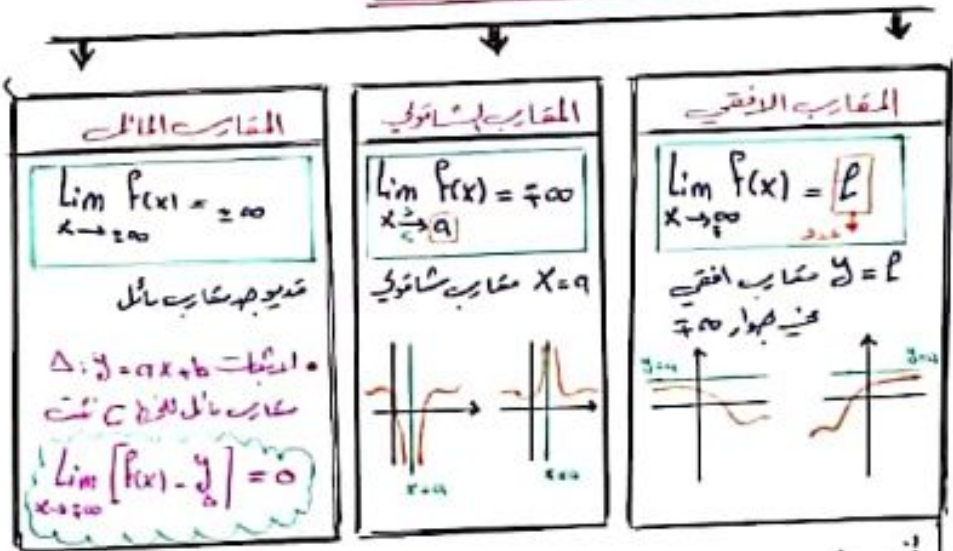 المقارب الافقي
Lim f(x) = ℓ
x→∓∞
عدد
y = ℓ مقارب افقي
في جوار ∓∞
y=a
y=a
المقارب الشاقولي
Lim f(x) = ∓∞
x→a
X=a مقارب شاقولي
x=a
x=a
المقارب المائل
Lim f(x) = ±∞
x→±∞
قد يوجد مقارب مائل
• لاثبات Δ: y=ax+b
مقارب مائل للخط C نثبت
Lim [f(x) - yΔ] = 0
x→∓∞